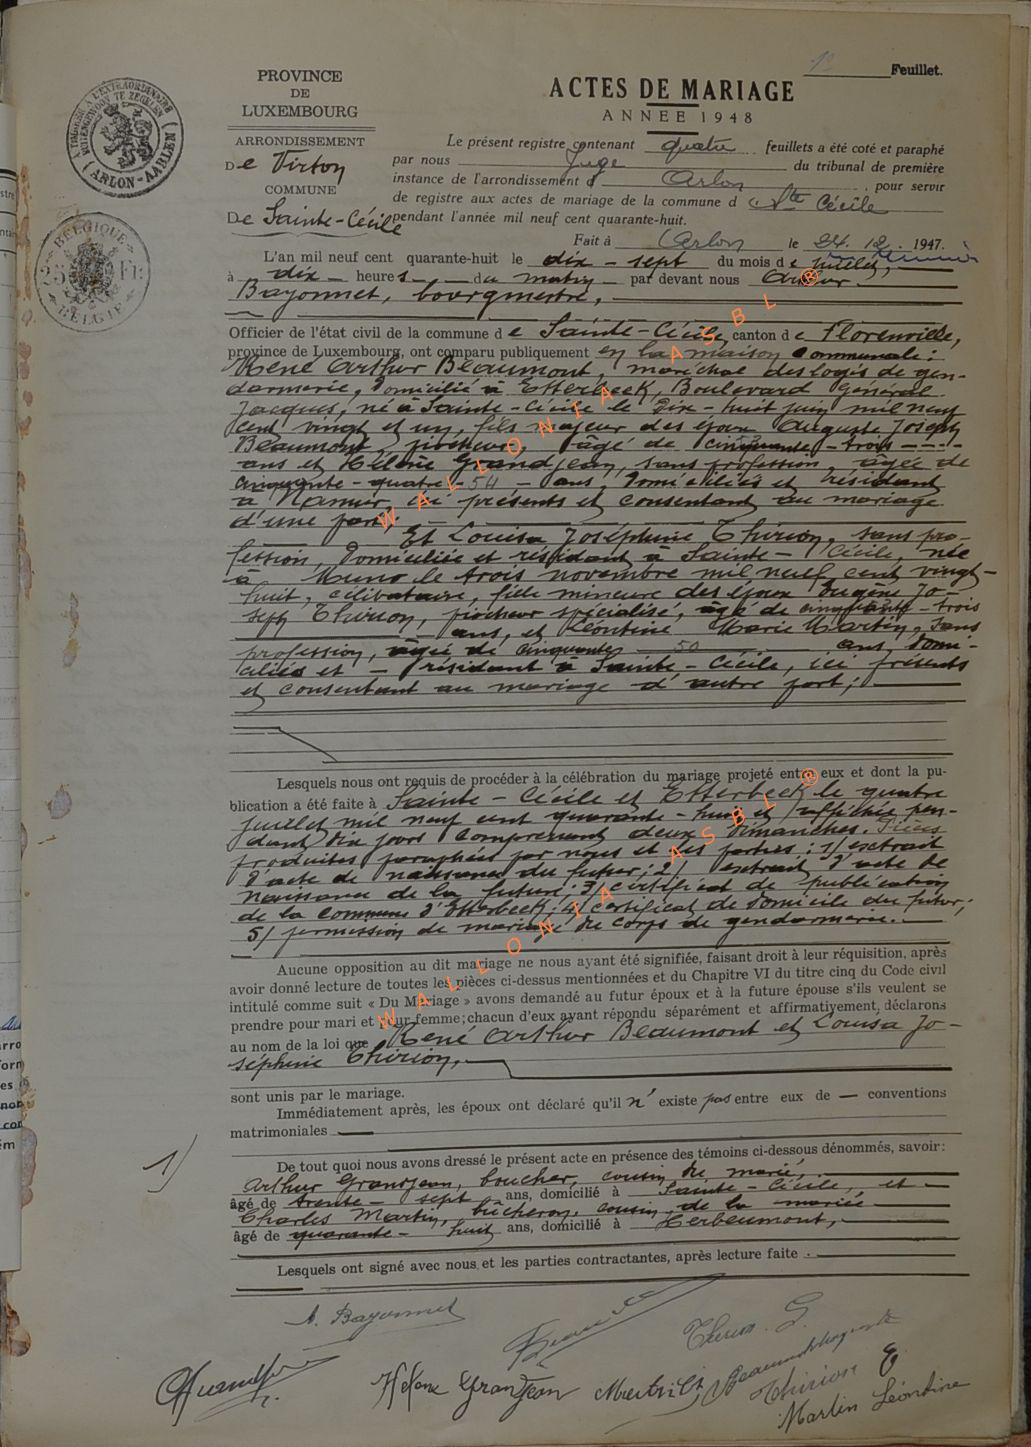 1er Feuillet.
PROVINCE
DE
LUXEMBOURG
ACTES DE MARIAGE
ANNEE 1948
ARRONDISSEMENT
De Virton
COMMUNE
De Sainte-Cécile
Le présent registre contenant quatre feuillets a été coté et paraphé
par nous Juge du tribunal de première
instance de l'arrondissement d' Arlon, pour servir
de registre aux actes de mariage de la commune d Ste Cécile
pendant l'année mil neuf cent quarante-huit.
Fait à Arlon le 24. 12. 1947.
A TIMBRER A L'EXTRAORDINAIRE
BUITENGEWOON TE ZEGELEN
(ARLON-AARLEN)
BELGIQUE
25 Fr.
BELGIE
L'an mil neuf cent quarante-huit le dix-sept du mois de juillet,
à dix heures du matin par devant nous Arthur
Bayonnet, bourgmestre,
Officier de l'état civil de la commune de Sainte-Cécile, canton de Florenville,
province de Luxembourg, ont comparu publiquement en la maison communale:
René Arthur Beaumont, maréchal des logis de gen-
darmerie, domicilié à Etterbeek, Boulevard Général
Jacques, né à Sainte-Cécile le Dix-huit juin mil neuf
cent vingt et un, fils majeur des époux Auguste Joseph
Beaumont, piocheur, âgé de cinquante-trois ----
ans et Hélène Grandjean, sans profession, âgée de
cinquante-quatre - 54 - ans, domiciliés et résidant
à Namur, ici présents et consentant au mariage
d'une part.
Et Louisa Joséphine Thirion, sans pro-
fession, domiciliée et résidant à Sainte-Cécile, née
à Muno le trois novembre mil neuf cent vingt-
huit, célibataire, fille mineure des époux Eugène Jo-
seph Thirion, piocheur spécialisé, âgé de cinquante-trois
ans, et Léontine Marie Martin, sans
profession, âgée de cinquante 50 ans, domi-
ciliés et résidant à Sainte-Cécile, ici présents
et consentant au mariage d'autre part;
Lesquels nous ont requis de procéder à la célébration du mariage projeté entre eux et dont la pu-
blication a été faite à Sainte-Cécile et Etterbeek le quatre
juillet mil neuf cent quarante-huit et affichée pen-
dant dix jours comprenant deux dimanches. Pièces
produites paraphées par nous et les parties: 1/ extrait
d'acte de naissance du futur; 2/ extrait d'acte de
naissance de la future; 3/ certificat de publication
de la commune d'Etterbeek; 4/ certificat de domicile du futur;
5/ permission de mariage du corps de gendarmerie.
Aucune opposition au dit mariage ne nous ayant été signifiée, faisant droit à leur réquisition, après
avoir donné lecture de toutes les pièces ci-dessus mentionnées et du Chapitre VI du titre cinq du Code civil
intitulé comme suit « Du Mariage » avons demandé au futur époux et à la future épouse s'ils veulent se
prendre pour mari et pour femme; chacun d'eux ayant répondu séparément et affirmativement, déclarons
au nom de la loi que René Arthur Beaumont et Louisa Jo-
séphine Thirion,
sont unis par le mariage.
Immédiatement après, les époux ont déclaré qu'il n'existe pas entre eux de — conventions
matrimoniales
1)
De tout quoi nous avons dressé le présent acte en présence des témoins ci-dessous dénommés, savoir:
Arthur Grandjean, boucher, cousin du marié,
âgé de trente-sept ans, domicilié à Sainte-Cécile, et
Charles Martin, bûcheron, cousin de la mariée
âgé de quarante-huit ans, domicilié à Herbeumont,
Lesquels ont signé avec nous et les parties contractantes, après lecture faite.
A. Bayonnet
Thirion. L.
Hélène Grandjean
Martin Ch
Thirion E
Martin Léontine
WALLONIA ASBL ®
WALLONIA ASBL ®